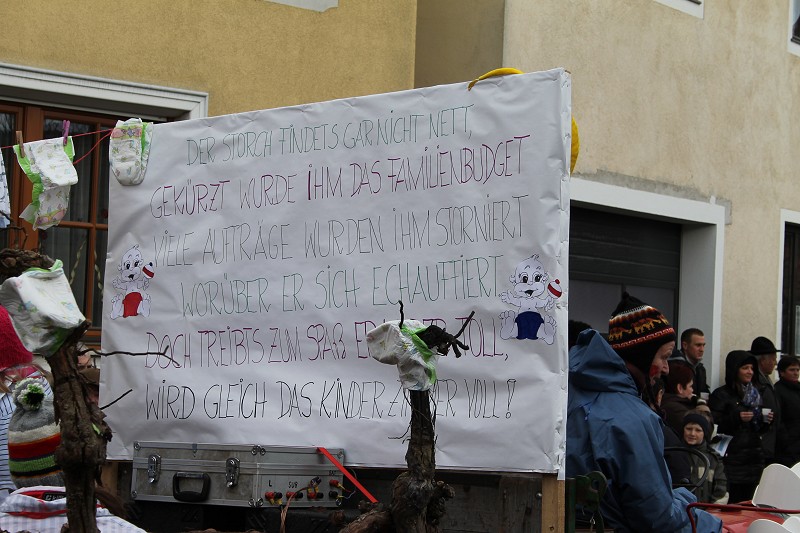 DER STORCH FINDETS GAR NICHT NETT,
GEKÜRZT WURDE IHM DAS FAMILIENBUDGET
VIELE AUFTRÄGE WURDEN IHM STORNIERT
WORÜBER ER SICH ECHAUFFIERT
DOCH TREIBTS ZUM SPAẞ TOLL,
WIRD GLEICH DAS KINDERZIMMER VOLL!